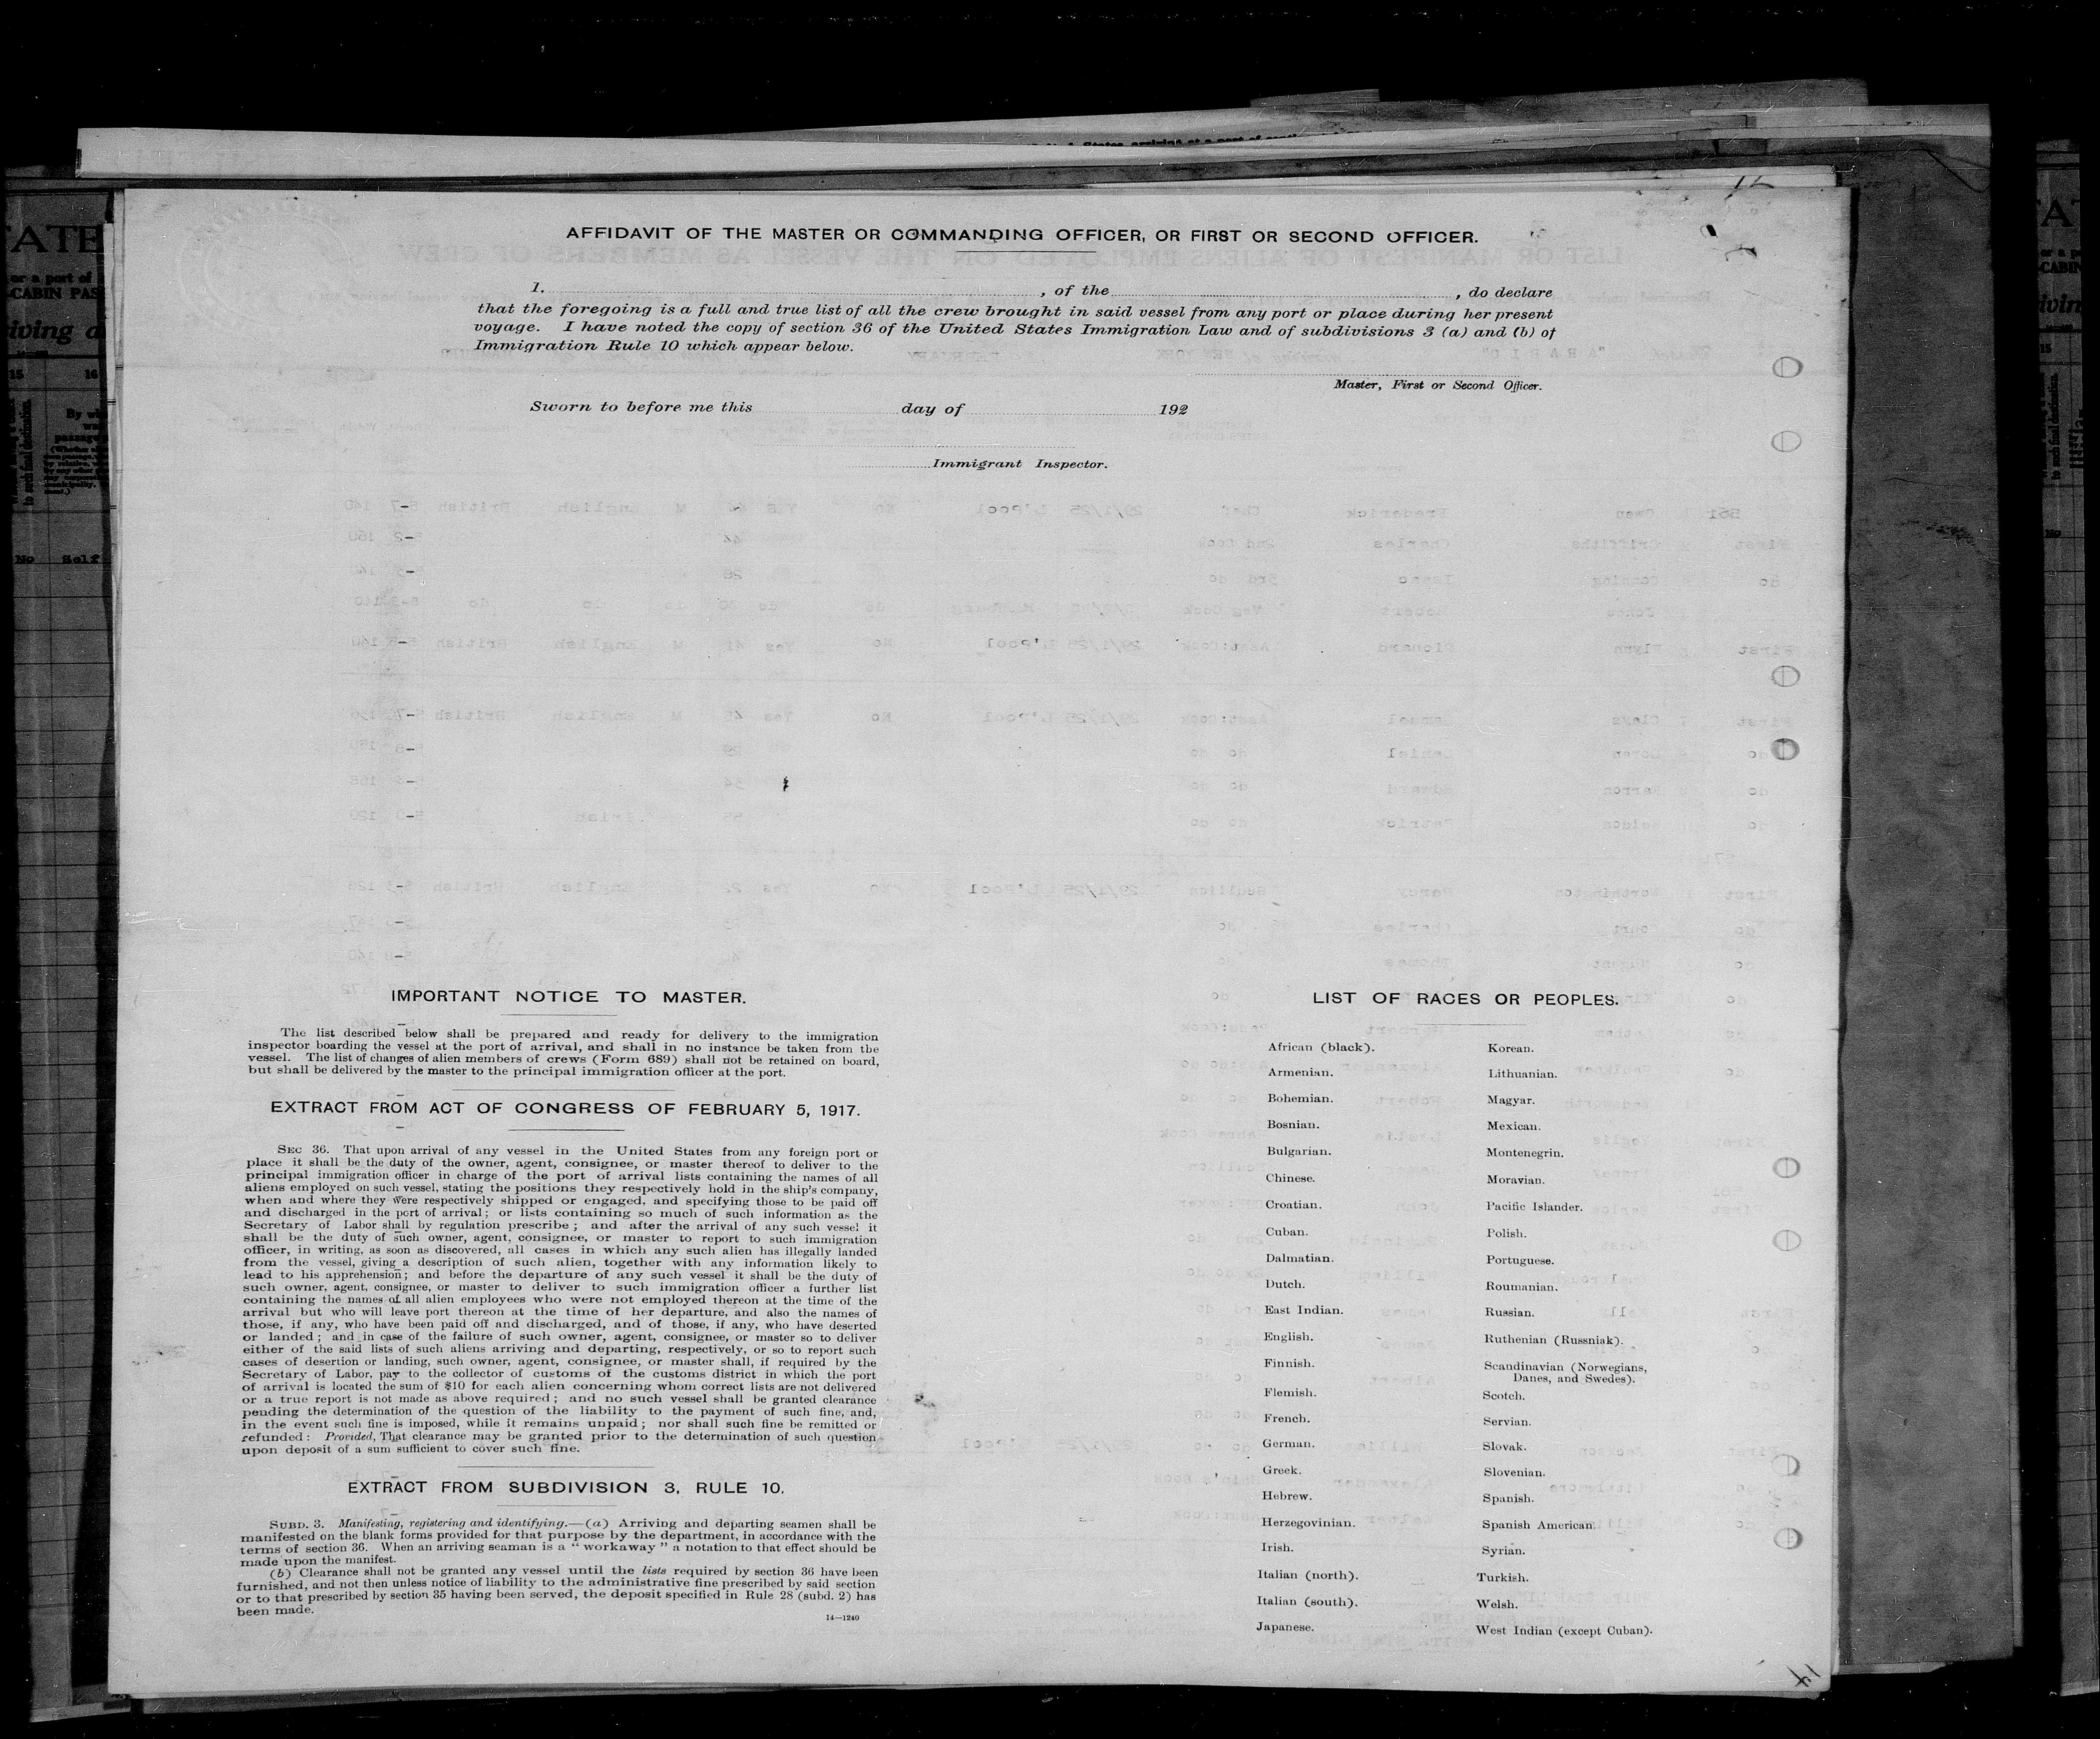 AFFIDAVIT OF THE MASTER OR COMMANDING OFFICER, OR FIRST OR SECOND OFFICER.
1. , of the , do declare
that the foregoing is a full and true list of all the crew brought in said vessel from any port or place during her present
voyage. I have noted the copy of section 36 of the United States Immigration Law and of subdivisions 3 (a) and (b) of
Immigration Rule 10 which appear below.
Master, First or Second Officer.
Sworn to before me this day of 192
Immigrant Inspector.
IMPORTANT NOTICE TO MASTER.
The list described below shall be prepared and ready for delivery to the immigration
inspector boarding the vessel at the port of arrival, and shall in no instance be taken from the
vessel. The list of changes of alien members of crews (Form 689) shall not be retained on board,
but shall be delivered by the master to the principal immigration officer at the port.
EXTRACT FROM ACT OF CONGRESS OF FEBRUARY 5, 1917.
SEC 36. That upon arrival of any vessel in the United States from any foreign port or
place it shall be the duty of the owner, agent, consignee, or master thereof to deliver to the
principal immigration officer in charge of the port of arrival lists containing the names of all
aliens employed on such vessel, stating the positions they respectively hold in the ship's company,
when and where they were respectively shipped or engaged, and specifying those to be paid off
and discharged in the port of arrival; or lists containing so much of such information as the
Secretary of Labor shall by regulation prescribe; and after the arrival of any such vessel it
shall be the duty of such owner, agent, consignee, or master to report to such immigration
officer, in writing, as soon as discovered, all cases in which any such alien has illegally landed
from the vessel, giving a description of such alien, together with any information likely to
lead to his apprehension; and before the departure of any such vessel it shall be the duty of
such owner, agent, consignee, or master to deliver to such immigration officer a further list
containing the names of all alien employees who were not employed thereon at the time of the
arrival but who will leave port thereon at the time of her departure, and also the names of
those, if any, who have been paid off and discharged, and of those, if any, who have deserted
or landed; and in case of the failure of such owner, agent, consignee, or master so to deliver
either of the said lists of such aliens arriving and departing, respectively, or so to report such
cases of desertion or landing, such owner, agent, consignee, or master shall, if required by the
Secretary of Labor, pay to the collector of customs of the customs district in which the port
of arrival is located the sum of $10 for each alien concerning whom correct lists are not delivered
or a true report is not made as above required; and no such vessel shall be granted clearance
pending the determination of the question of the liability to the payment of such fine, and,
in the event such fine is imposed, while it remains unpaid; nor shall such fine be remitted or
refunded: Provided, That clearance may be granted prior to the determination of such question
upon deposit of a sum sufficient to cover such fine.
EXTRACT FROM SUBDIVISION 3, RULE 10.
SUBD. 3. Manifesting, registering and identifying.—(a) Arriving and departing seamen shall be
manifested on the blank forms provided for that purpose by the department, in accordance with the
terms of section 36. When an arriving seaman is a "workaway" a notation to that effect should be
made upon the manifest.
(b) Clearance shall not be granted any vessel until the lists required by section 36 have been
furnished, and not then unless notice of liability to the administrative fine prescribed by said section
or to that prescribed by section 35 having been served, the deposit specified in Rule 28 (subd. 2) has
been made.
14—1240
LIST OF RACES OR PEOPLES.
African (black).
Armenian.
Bohemian.
Bosnian.
Bulgarian.
Chinese.
Croatian.
Cuban.
Dalmatian.
Dutch.
East Indian.
English.
Finnish.
Flemish.
French.
German.
Greek.
Hebrew.
Herzegovinian.
Irish.
Italian (north).
Italian (south).
Japanese.
Korean.
Lithuanian.
Magyar.
Mexican.
Montenegrin.
Moravian.
Pacific Islander.
Polish.
Portuguese.
Roumanian.
Russian.
Ruthenian (Russniak).
Scandinavian (Norwegians,
Danes, and Swedes).
Scotch.
Servian.
Slovak.
Slovenian.
Spanish.
Spanish American.
Syrian.
Turkish.
Welsh.
West Indian (except Cuban).